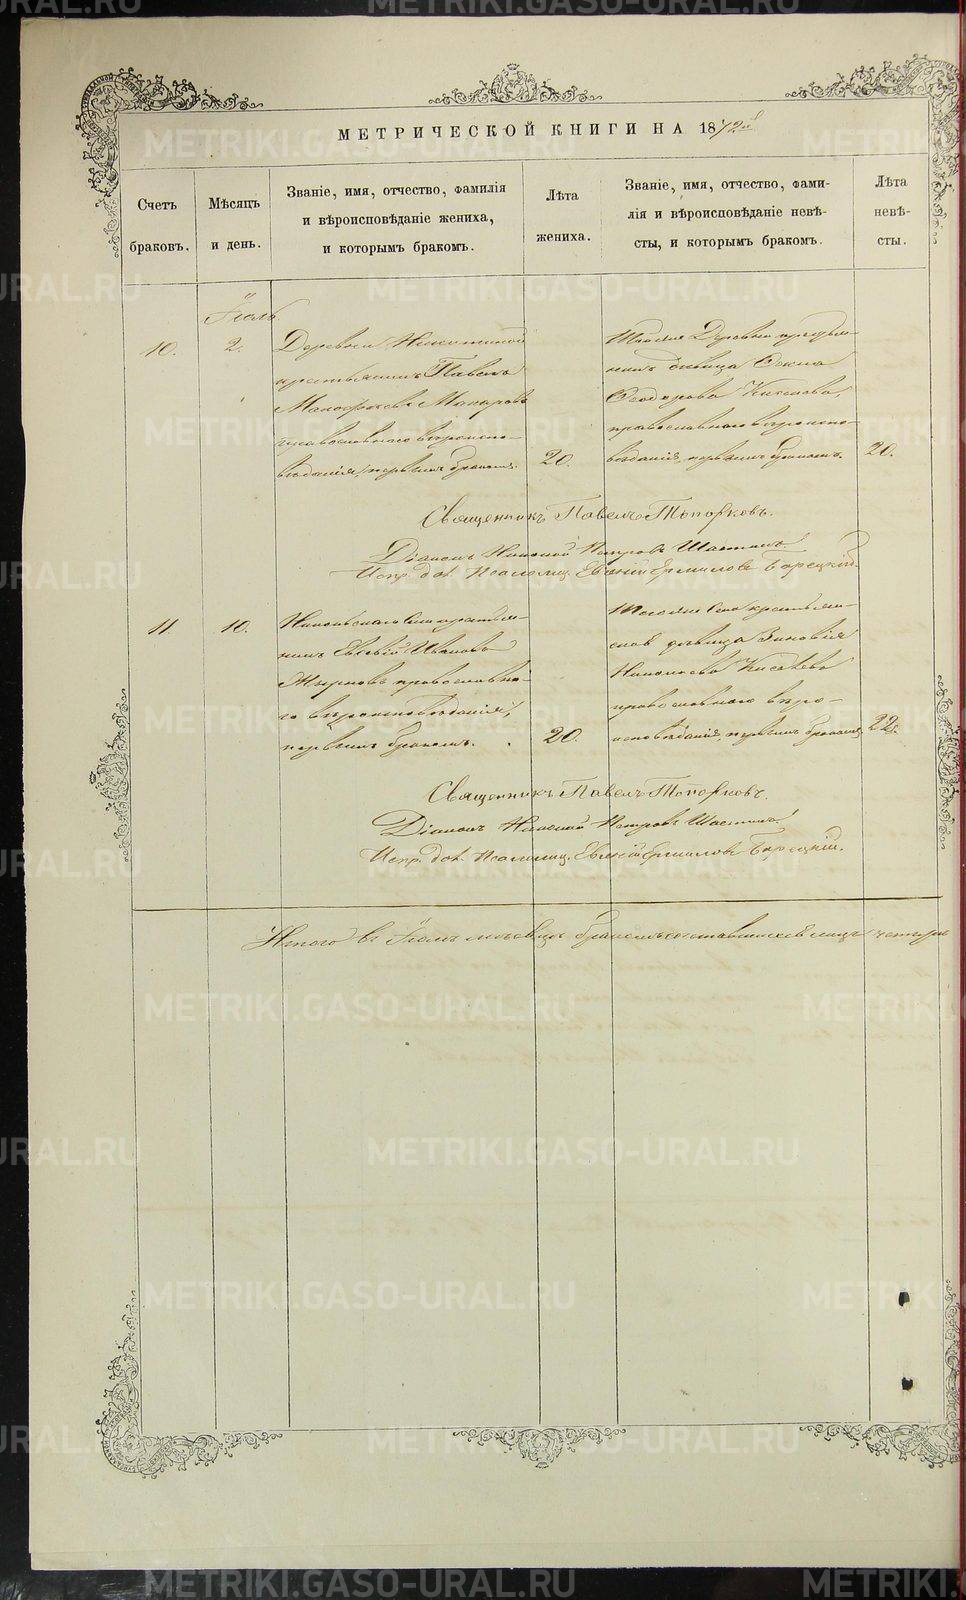 МЕТРИЧЕСКОЙ КНИГИ НА 1872й
Счетъ браковъ.
Мѣсяцъ и день.
Званіе, имя, отчество, фамилія
и вѣроисповѣданіе жениха,
и которымъ бракомъ.
Лѣта жениха.
Званіе, имя, отчество, фами-
лія и вѣроисповѣданіе невѣ-
сты, и которымъ бракомъ.
Лѣта невѣ-
сты.
Іюль
10.
2.
Деревни Никитиной
крестьянинъ Павелъ
Макаровъ
православнаго вѣроиспо-
вѣданія, первымъ бракомъ.
20.
Тойже Деревни крестьян-
дѣвица
Ѳеодорова Киселова,
православнаго вѣроиспо-
вѣданія, первымъ бракомъ.
20.
Священникъ Павелъ Топорковъ.
Діаконъ Николай Петровъ
Испр. дол. Псаломщ. Евгеній Ермиловъ Барецкій.
11.
10.
Никольскаго Села крестья-
нинъ Евгеній Ивановъ
православна-
го вѣроисповѣданія,
первымъ бракомъ.
20.
Тогоже Села крестьян-
дѣвица Зиновія
Николаева
православнаго вѣро-
исповѣданія, первымъ бракомъ
22.
Священникъ Павелъ Топорковъ.
Діаконъ Николай Петровъ
Испр. дол. Псаломщ. Евгеній Ермиловъ Барецкій.
Итого въ Іюлѣ мѣсяцѣ бракомъ сочетавшихся лицъ четыре
METRIKI.GASO-URAL.RU